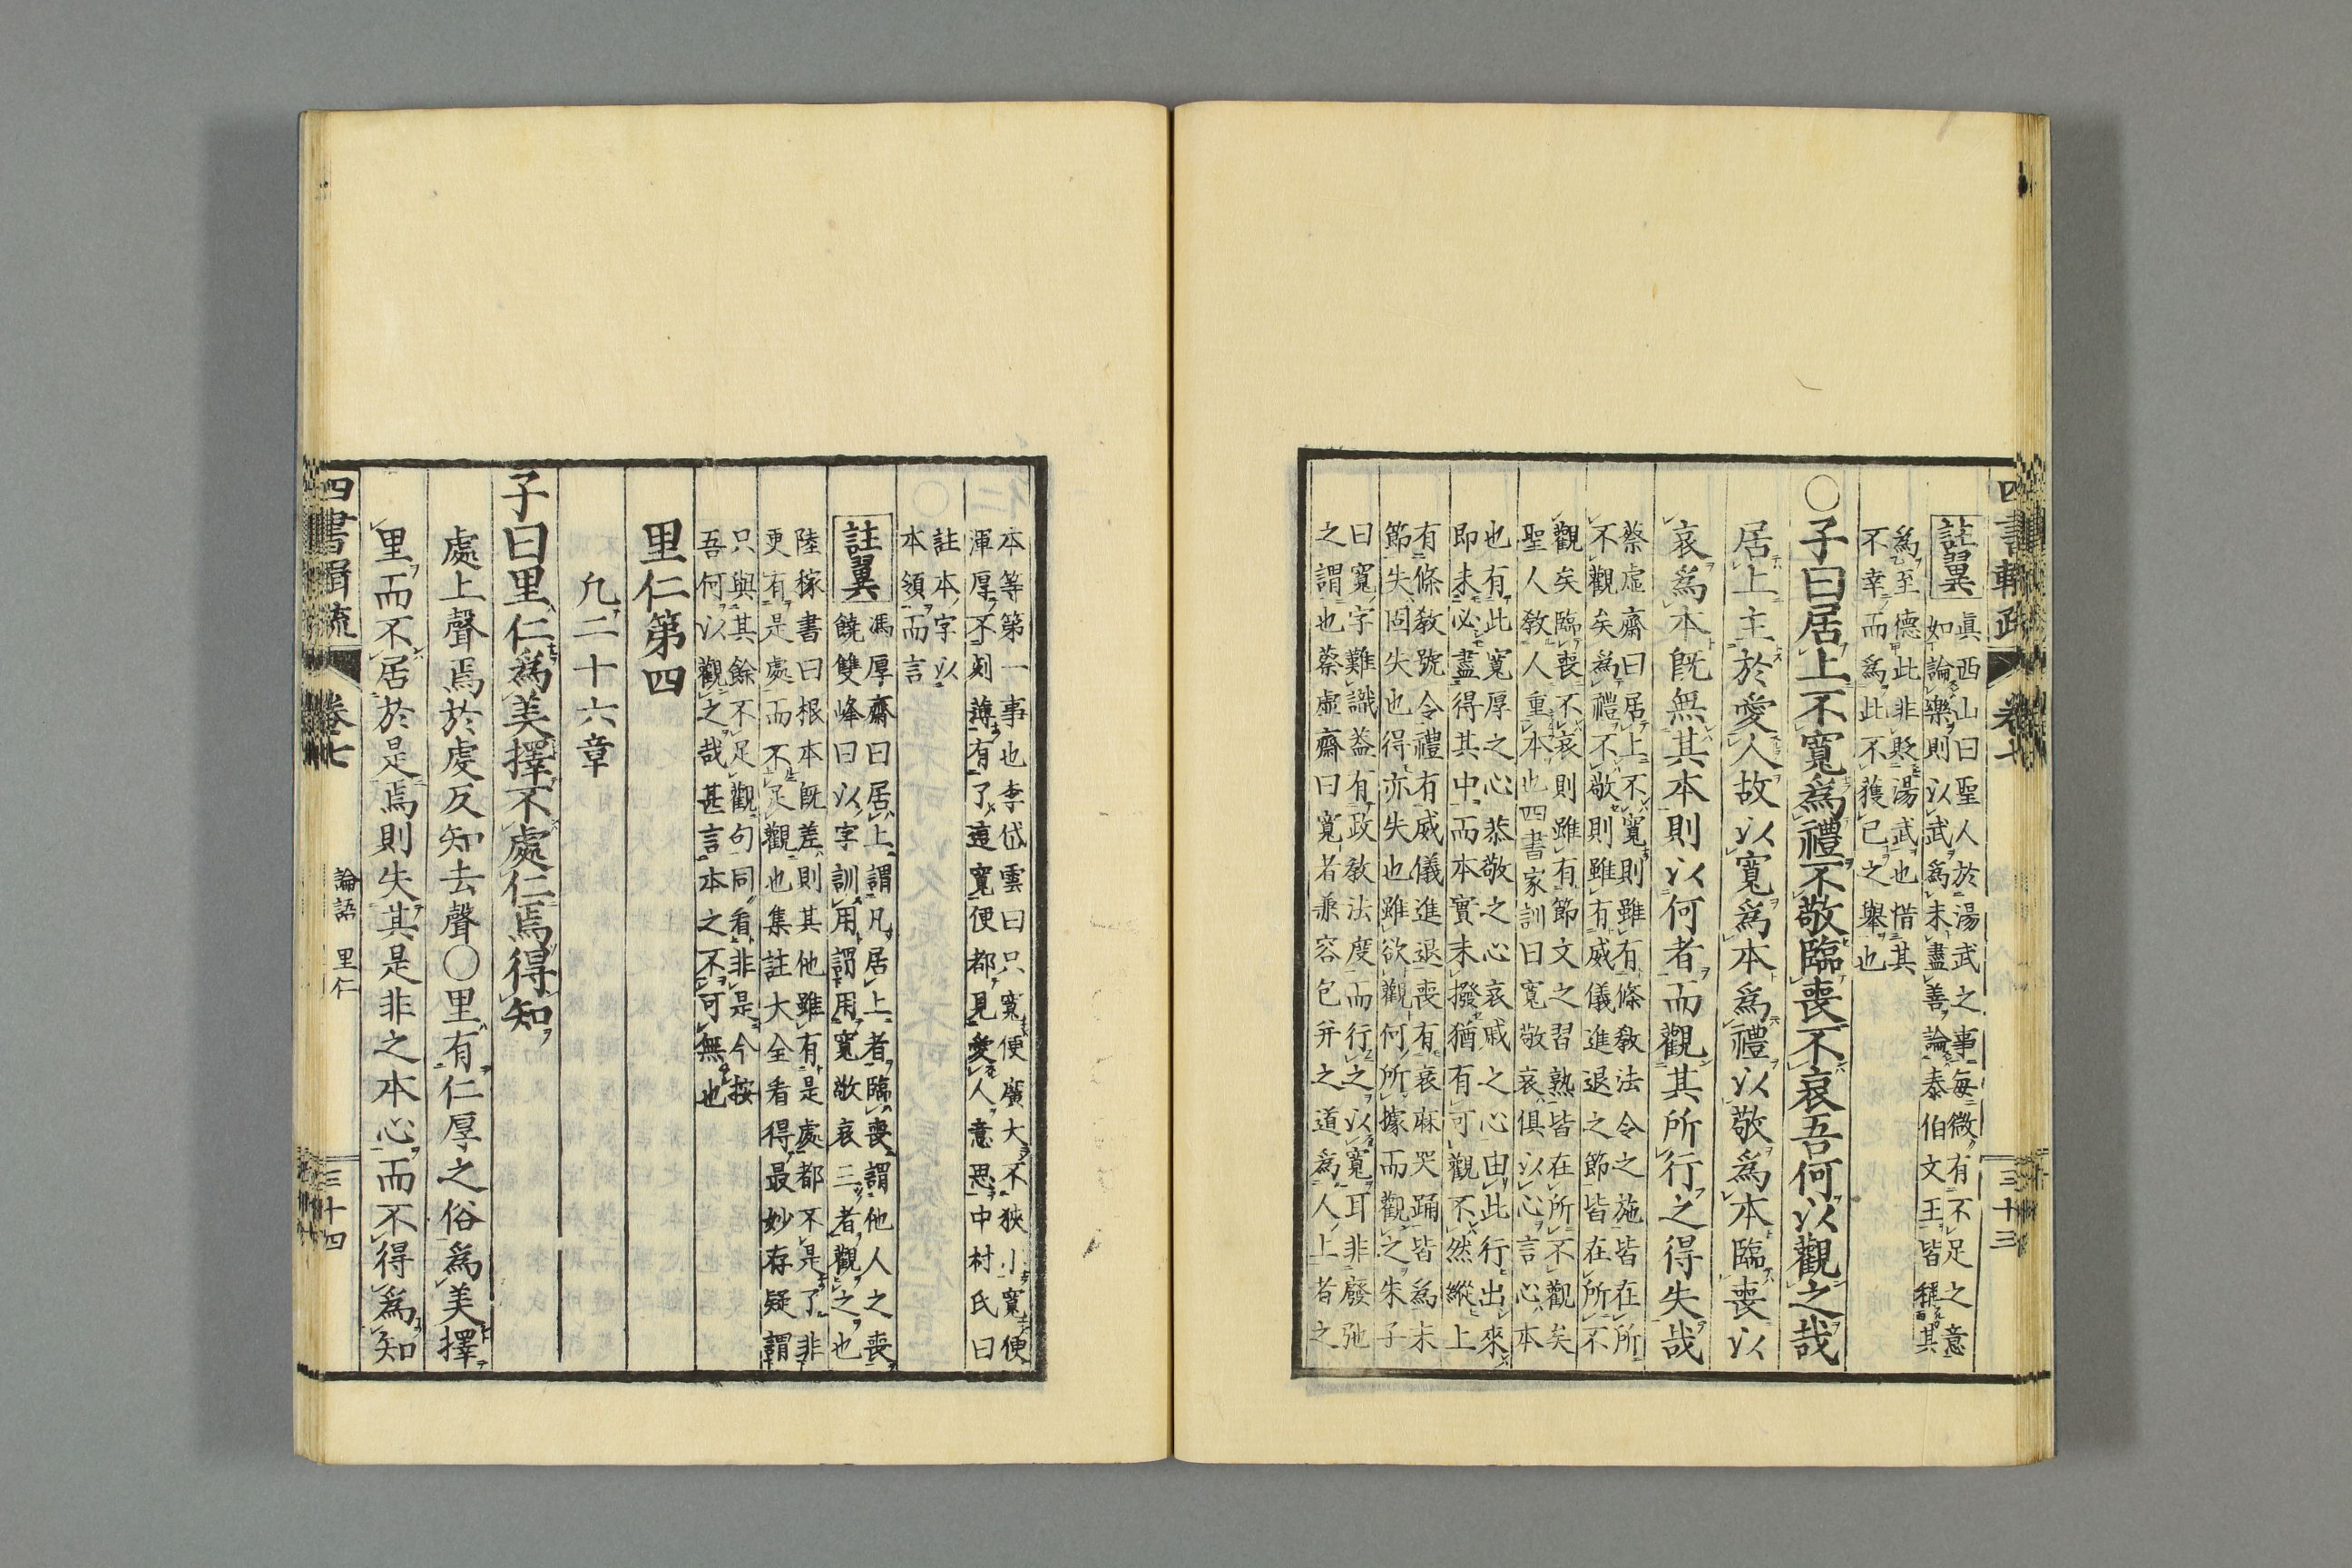 四書輯疏 卷七 三十三
註翼
眞西山曰聖人於湯武之事每微有不足之意
如論樂則以武爲未盡善論泰伯文王皆稱其
爲至德此非貶湯武也惜其
不幸而爲此不獲已之舉也
○子曰居上不寬爲禮不敬臨喪不哀吾何以觀之哉
居上主於愛人故以寬爲本爲禮以敬爲本臨喪以
哀爲本旣無其本則以何者而觀其所行之得失哉
蔡虛齋曰居上不寬則雖有條教法令之施皆在所
不觀矣爲禮不敬則雖有威儀進退之節皆在所不
觀矣臨喪不哀則雖有節文之習熟皆在所不觀矣
聖人教人重本也四書家訓曰寬敬哀俱以心言心本
也有此寬厚之心恭敬之心哀戚之心由此行出來
即未必盡得其中而本實未撥猶有可觀不然縱上
有條教號令禮有威儀進退喪有哀麻哭踊皆爲末
節失固失也得亦失也雖欲觀何所據而觀之朱子
曰寬字難識蓋有政教法度而行之以寬耳非廢弛
之謂也蔡虛齋曰寬者兼容包幷之道爲人上者之
本等第一事也李岱雲曰只寬便廣大不狹小寬便
渾厚不刻薄有了這寬便都見愛人意思中村氏曰
註本字以
本領而言
註翼
馮厚齋曰居上謂凡居上者臨喪謂他人之喪
饒雙峰曰以字訓用謂用寬敬哀三者觀之也
陸稼書曰根本旣差則其他雖有是處都不是了非
更有是處而不足觀也集註大全看得最妙存疑謂
只與其餘不足觀句同看非是今按
吾何以觀之哉甚言本之不可無也
里仁第四
凢二十六章
子曰里仁爲美擇不處仁焉得知
處上聲焉於虔反知去聲○里有仁厚之俗爲美擇
里而不居於是焉則失其是非之本心而不得爲知
四書輯疏 卷七 論語 里仁 三十四